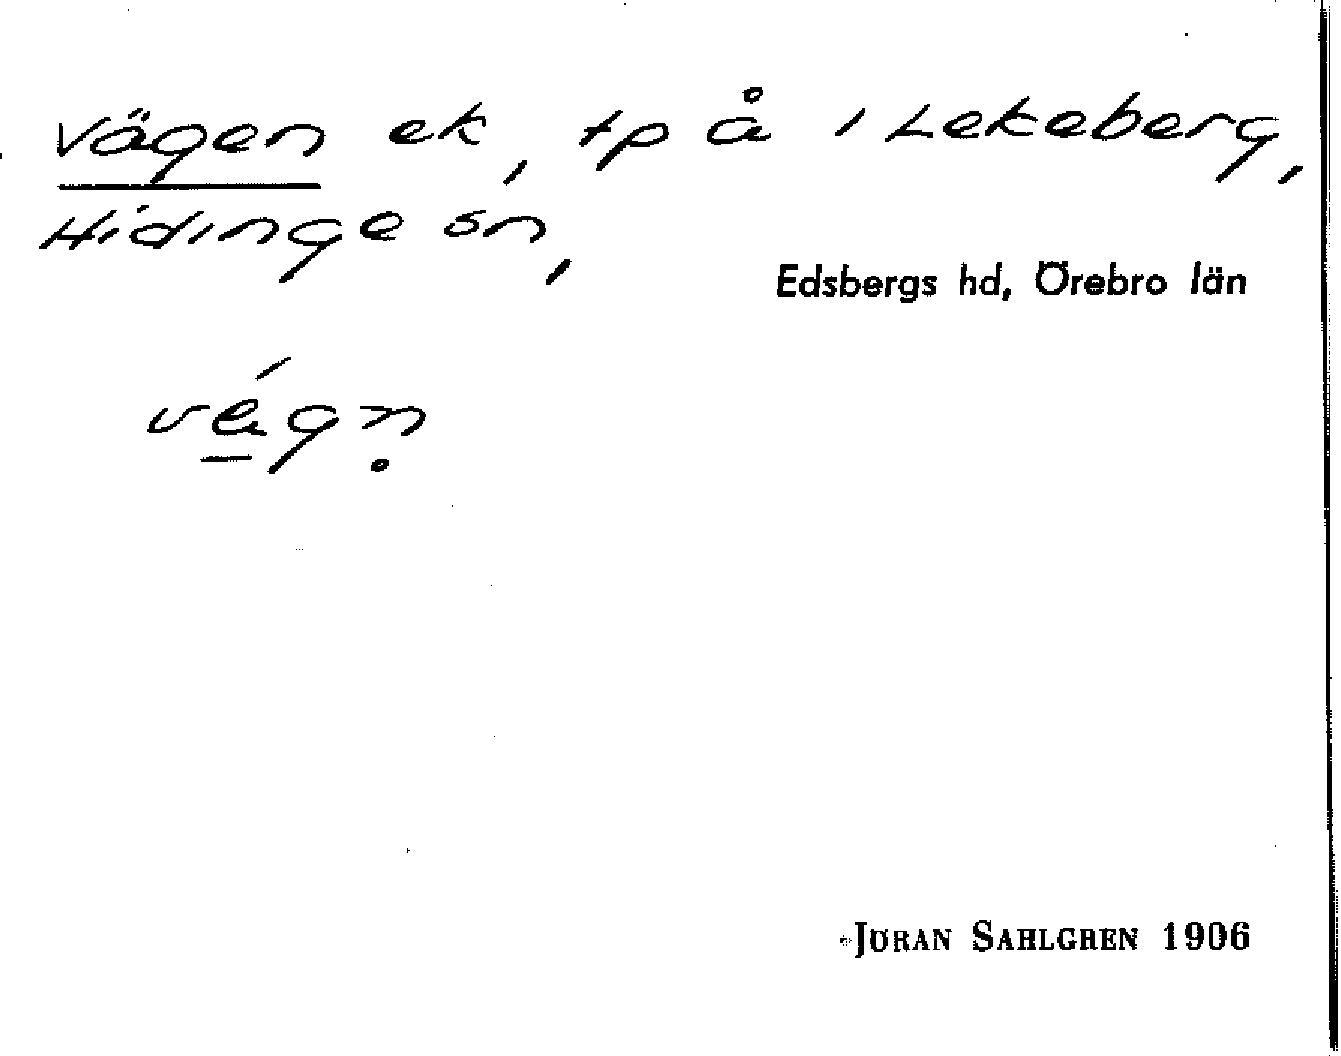 Vägen ek, tp å i Lekeberg,
Hidinge sn,
Edsbergs hd, Örebro län
JÖRAN SAHLGREN 1906